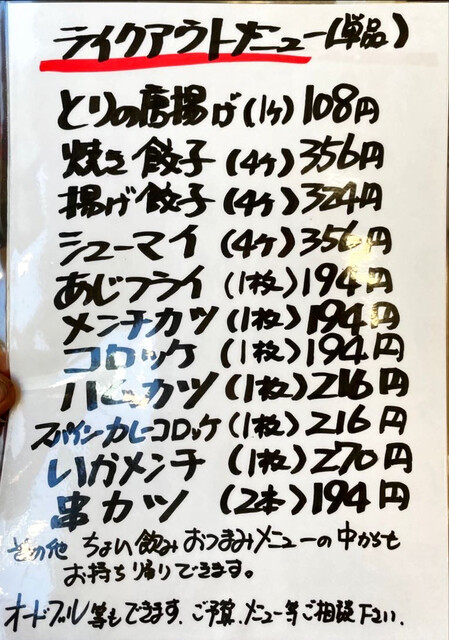 テイクアウトメニュー(単品)
とりの唐揚げ(1ヶ)108円
焼き餃子(4ヶ)356円
揚げ餃子(4ヶ)324円
シューマイ(4ヶ)356円
あじフライ(1枚)194円
メンチカツ(1枚)194円
コロッケ(1枚)194円
ハムカツ(1枚)216円
スパインカレーコロッケ(1枚)216円
いかメンチ(1枚)270円
串カツ(2本)194円
その他 ちょい飲みおつまみメニューの中からも
お持ち帰りできます。
オードブル等もできます、ご予算、メニュー等ご相談下さい、